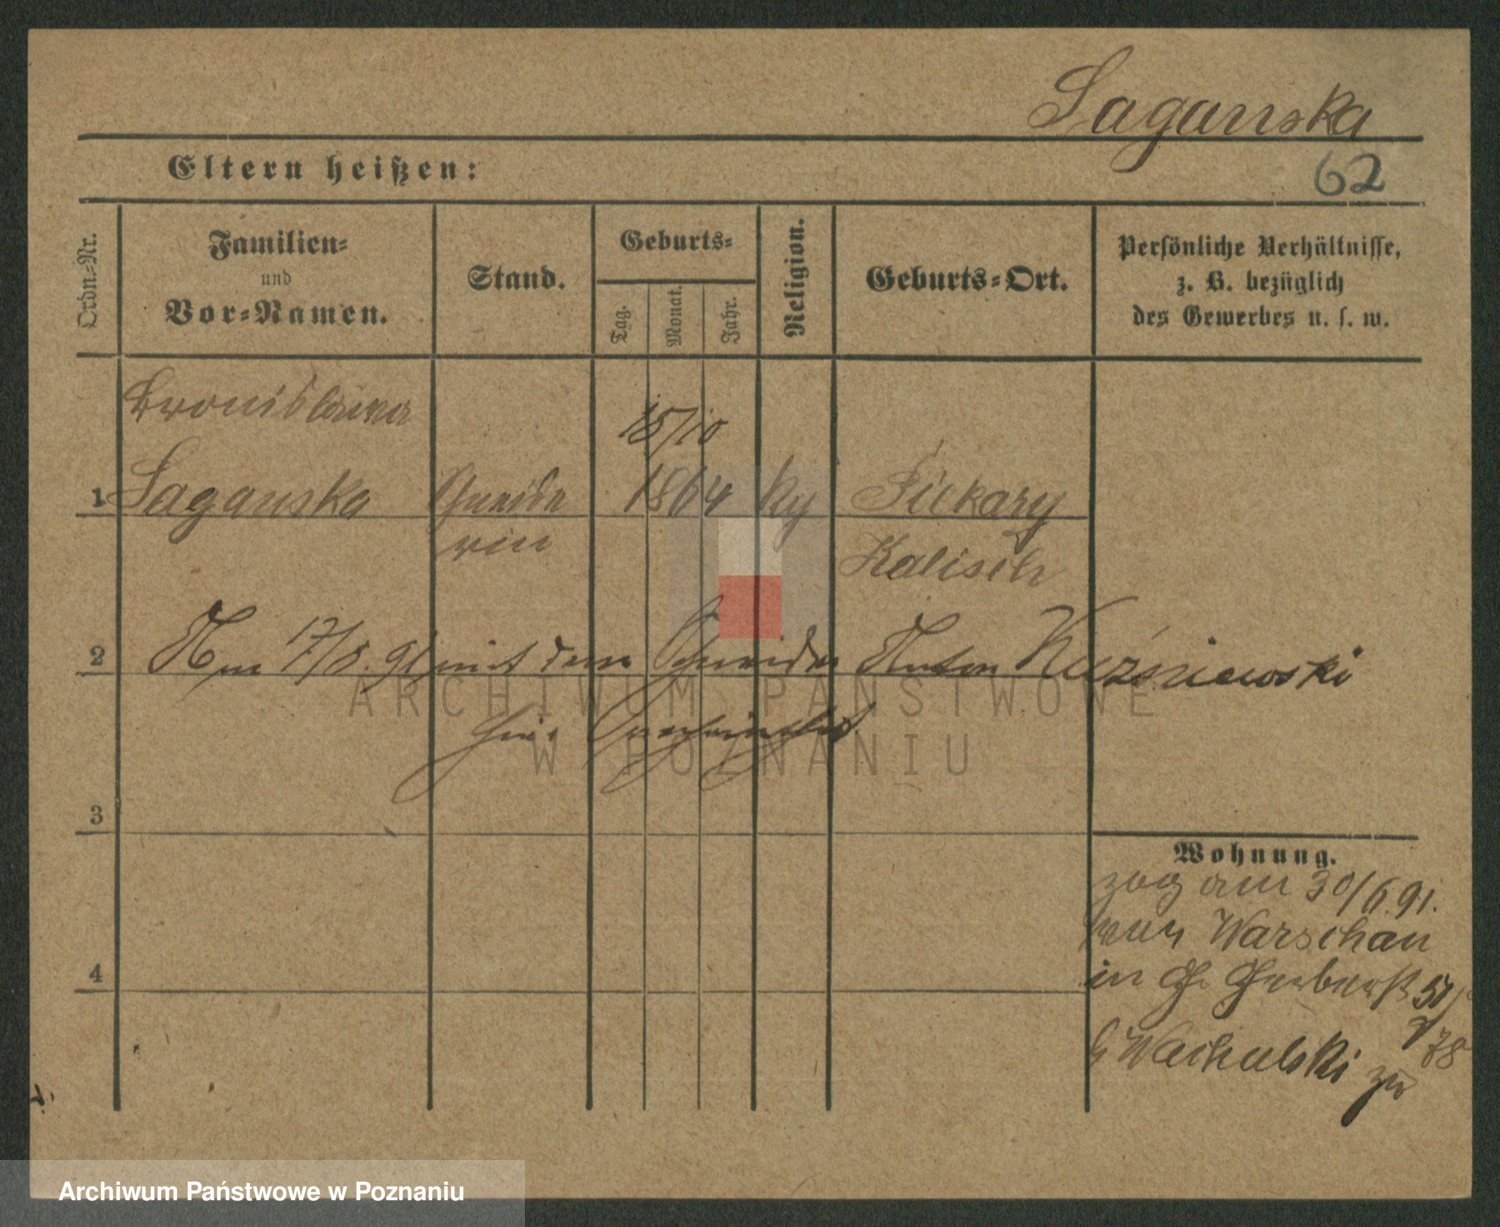 Saganska
Eltern heißen:
62
Ordn.-Nr.
Familien-
und
Vor-Namen.
Stand.
Geburts-
Tag.
Monat.
Jahr.
Religion.
Geburts-Ort.
Persönliche Verhältnisse,
z. B. bezüglich
des Gewerbes u. s. w.
Bronislawa
15/10
1 Saganska Schneide 1864 ky Piekary
rin Kalisch
2 Am 17/8. 91 mit dem Schneider Anton Kuźniewski
hier
3
Wohnung.
zog am 30/6 91.
von Warschau
in Gr Gerberst 51
4
b Wachalski zu
78
ARCHIWUM PAŃSTWOWE
W POZNANIU
Archiwum Państwowe w Poznaniu